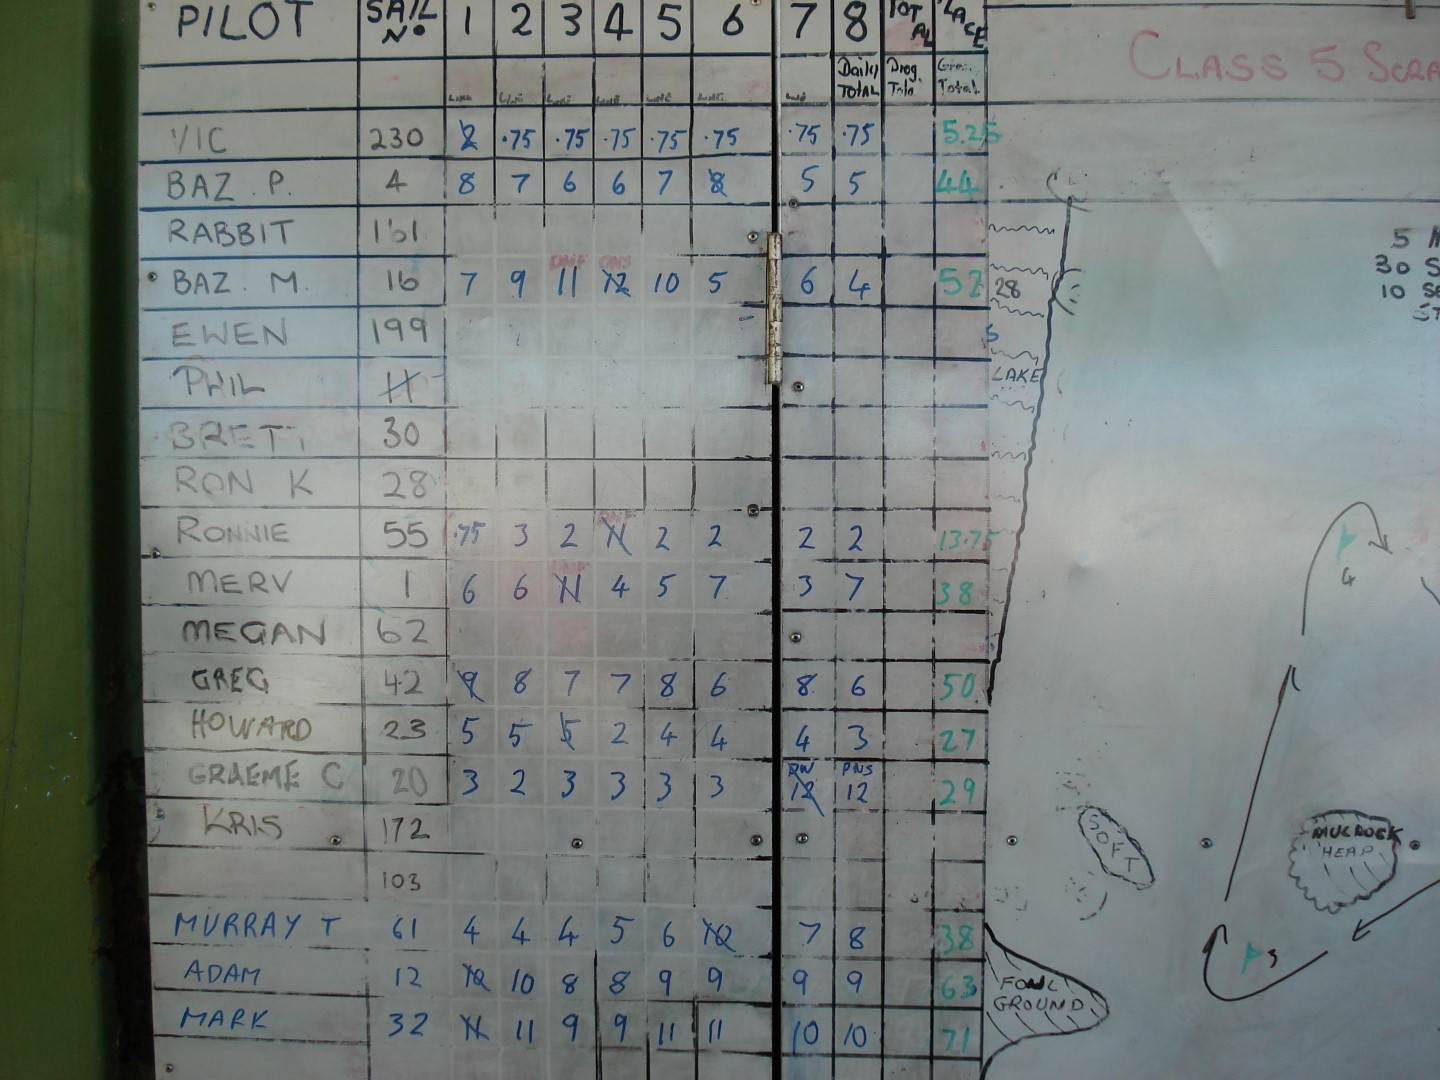 PILOT SAIL No 1 2 3 4 5 6 7 8 TOTAL PLACE
CLASS 5 SCRA
LINE LINE LINE LINE LINE LINE LINE Daily TOTAL Prog. Total
VIC 230 2 .75 .75 .75 .75 .75 .75 .75 5.25
BAZ. P. 4 8 7 6 6 7 8 5 5 44
RABBIT 161
5
DNF DNS
30 S
BAZ. M. 16 7 9 11 12 10 5 6 4 52 28
10
EWEN 199
PHIL 11 LAKE
BRETT 30
RON K 28
DNF
RONNIE 55 .75 3 2 11 2 2 2 2 13.75
DNF
MERV 1 6 6 11 4 5 7 3 7 38
4
MEGAN 62
GREG 42 9 8 7 7 8 6 8 6 50
HOWARD 23 5 5 5 2 4 4 4 3 27
DNS
GRAEME C 20 3 2 3 3 3 3 12 12 29
KRIS 172
SOFT
MURDOCK
HEAP
103
MURRAY T 61 4 4 4 5 6 10 7 8 38
3
ADAM 12 10 10 8 8 9 9 9 9 63
FOUL
GROUND
MARK 32 11 11 9 9 11 11 10 10 71